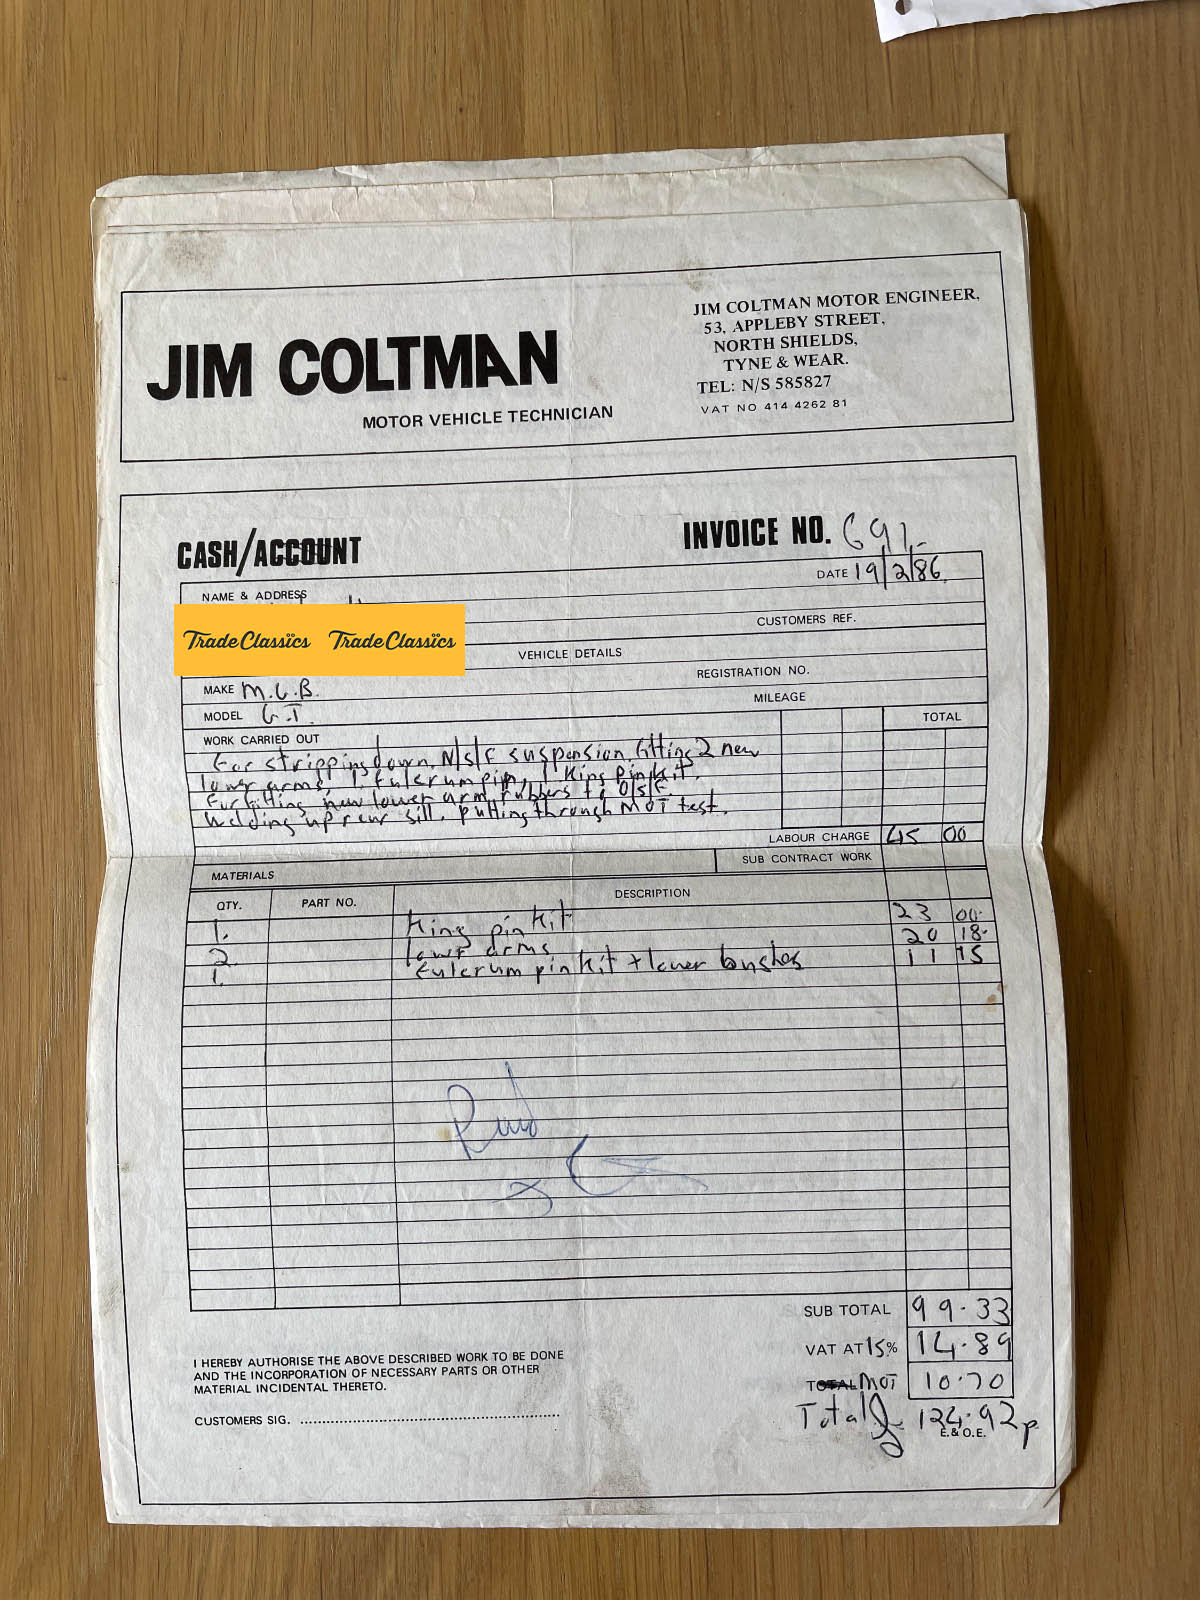 JIM COLTMAN
MOTOR VEHICLE TECHNICIAN
JIM COLTMAN MOTOR ENGINEER,
53, APPLEBY STREET,
NORTH SHIELDS,
TYNE & WEAR.
TEL: N/S 585827
VAT NO 414 4262 81
CASH/ACCOUNT
INVOICE NO. 691
DATE 19/2/86
NAME & ADDRESS
TradeClassics TradeClassics
CUSTOMERS REF.
VEHICLE DETAILS
REGISTRATION NO.
MAKE M.G.B.
MILEAGE
MODEL G.T.
TOTAL
WORK CARRIED OUT
For stripping down N/S/F suspension, fitting 2 new
lower arms, 1 fulcrum pin, 1 King pin kit.
For fitting new lower arm rubbers to O/S/F.
Welding up rear sill. putting through MOT test.
LABOUR CHARGE 45 00
SUB CONTRACT WORK
MATERIALS
QTY. PART NO. DESCRIPTION
1. King pin kit 23 00
2 lower arms 20 18
1. Fulcrum pin kit + lower bushes 11 15
Paid
SUB TOTAL 99.33
VAT AT 15% 14.89
TOTAL MOT 10.70
Total £ 124.92p
E. & O.E.
I HEREBY AUTHORISE THE ABOVE DESCRIBED WORK TO BE DONE
AND THE INCORPORATION OF NECESSARY PARTS OR OTHER
MATERIAL INCIDENTAL THERETO.
CUSTOMERS SIG.